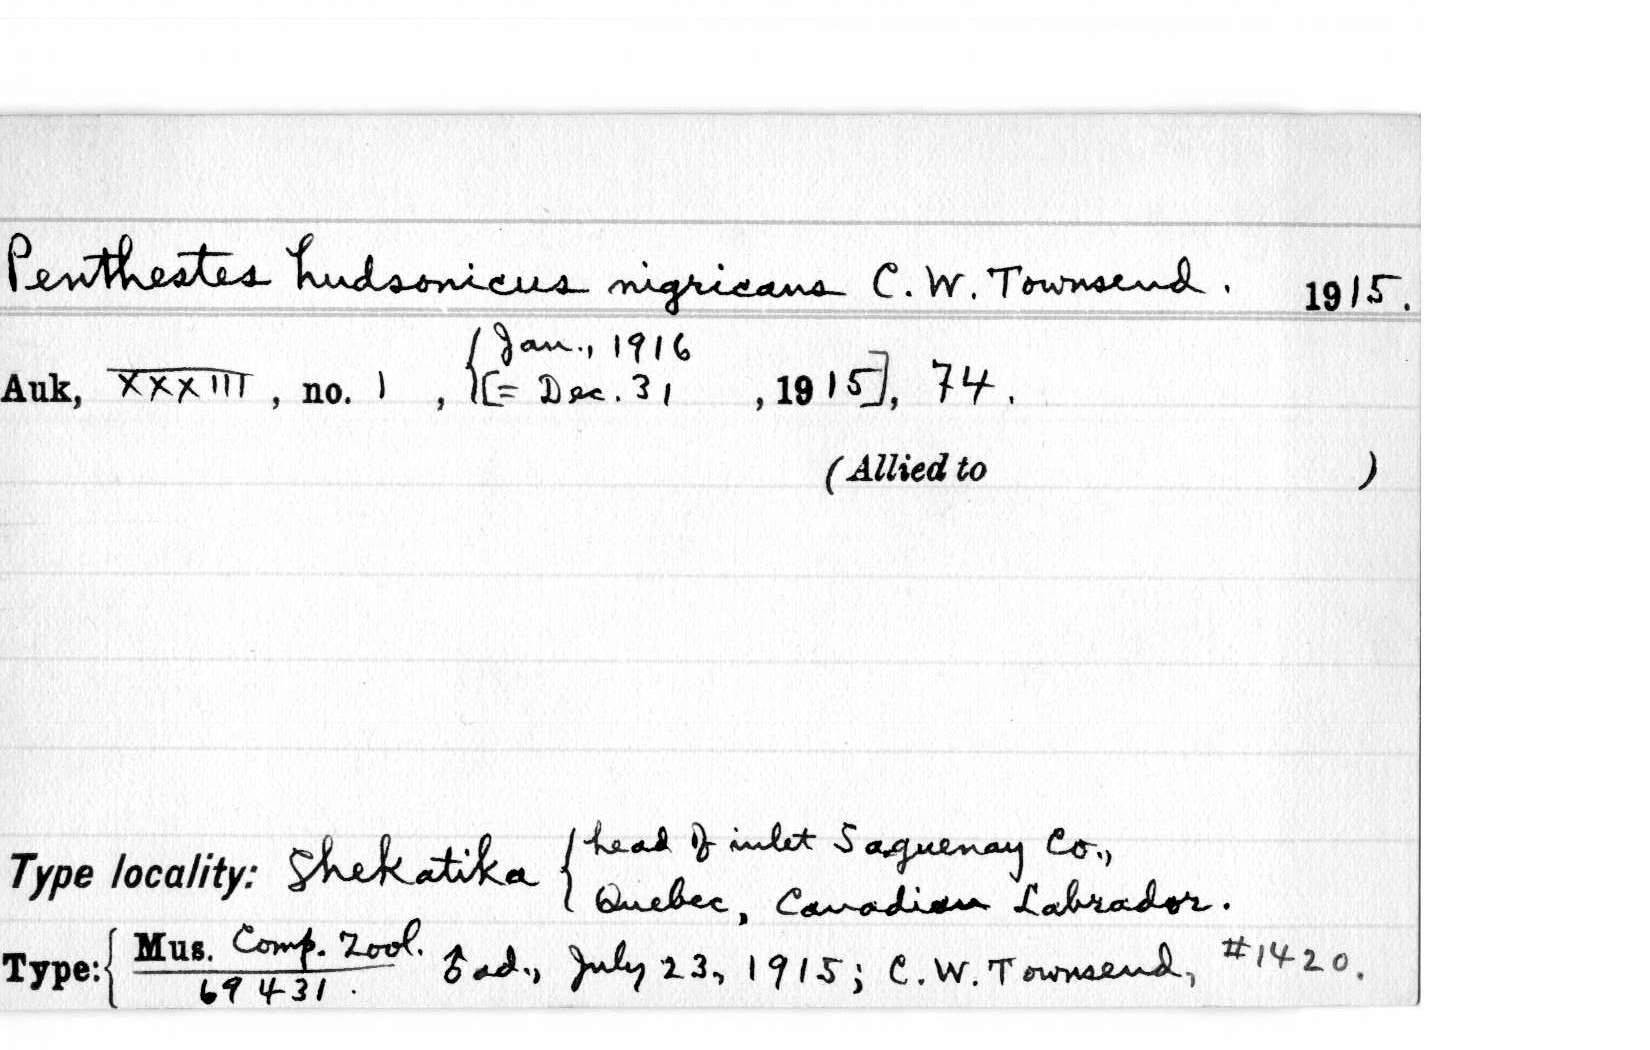 Penthestes hudsonicus nigricans C. W. Townsend. 1915.
Jan., 1916
Auk, XXXIII, no. 1, [= Dec. 31, 1915], 74.
(Allied to )
head of inlet Saguenay Co.,
Type locality: Shekatika
Quebec, Canadian Labrador.
Type: Mus. Comp. Zool. ♂ ad., July 23, 1915; C. W. Townsend, #1420.
69431.